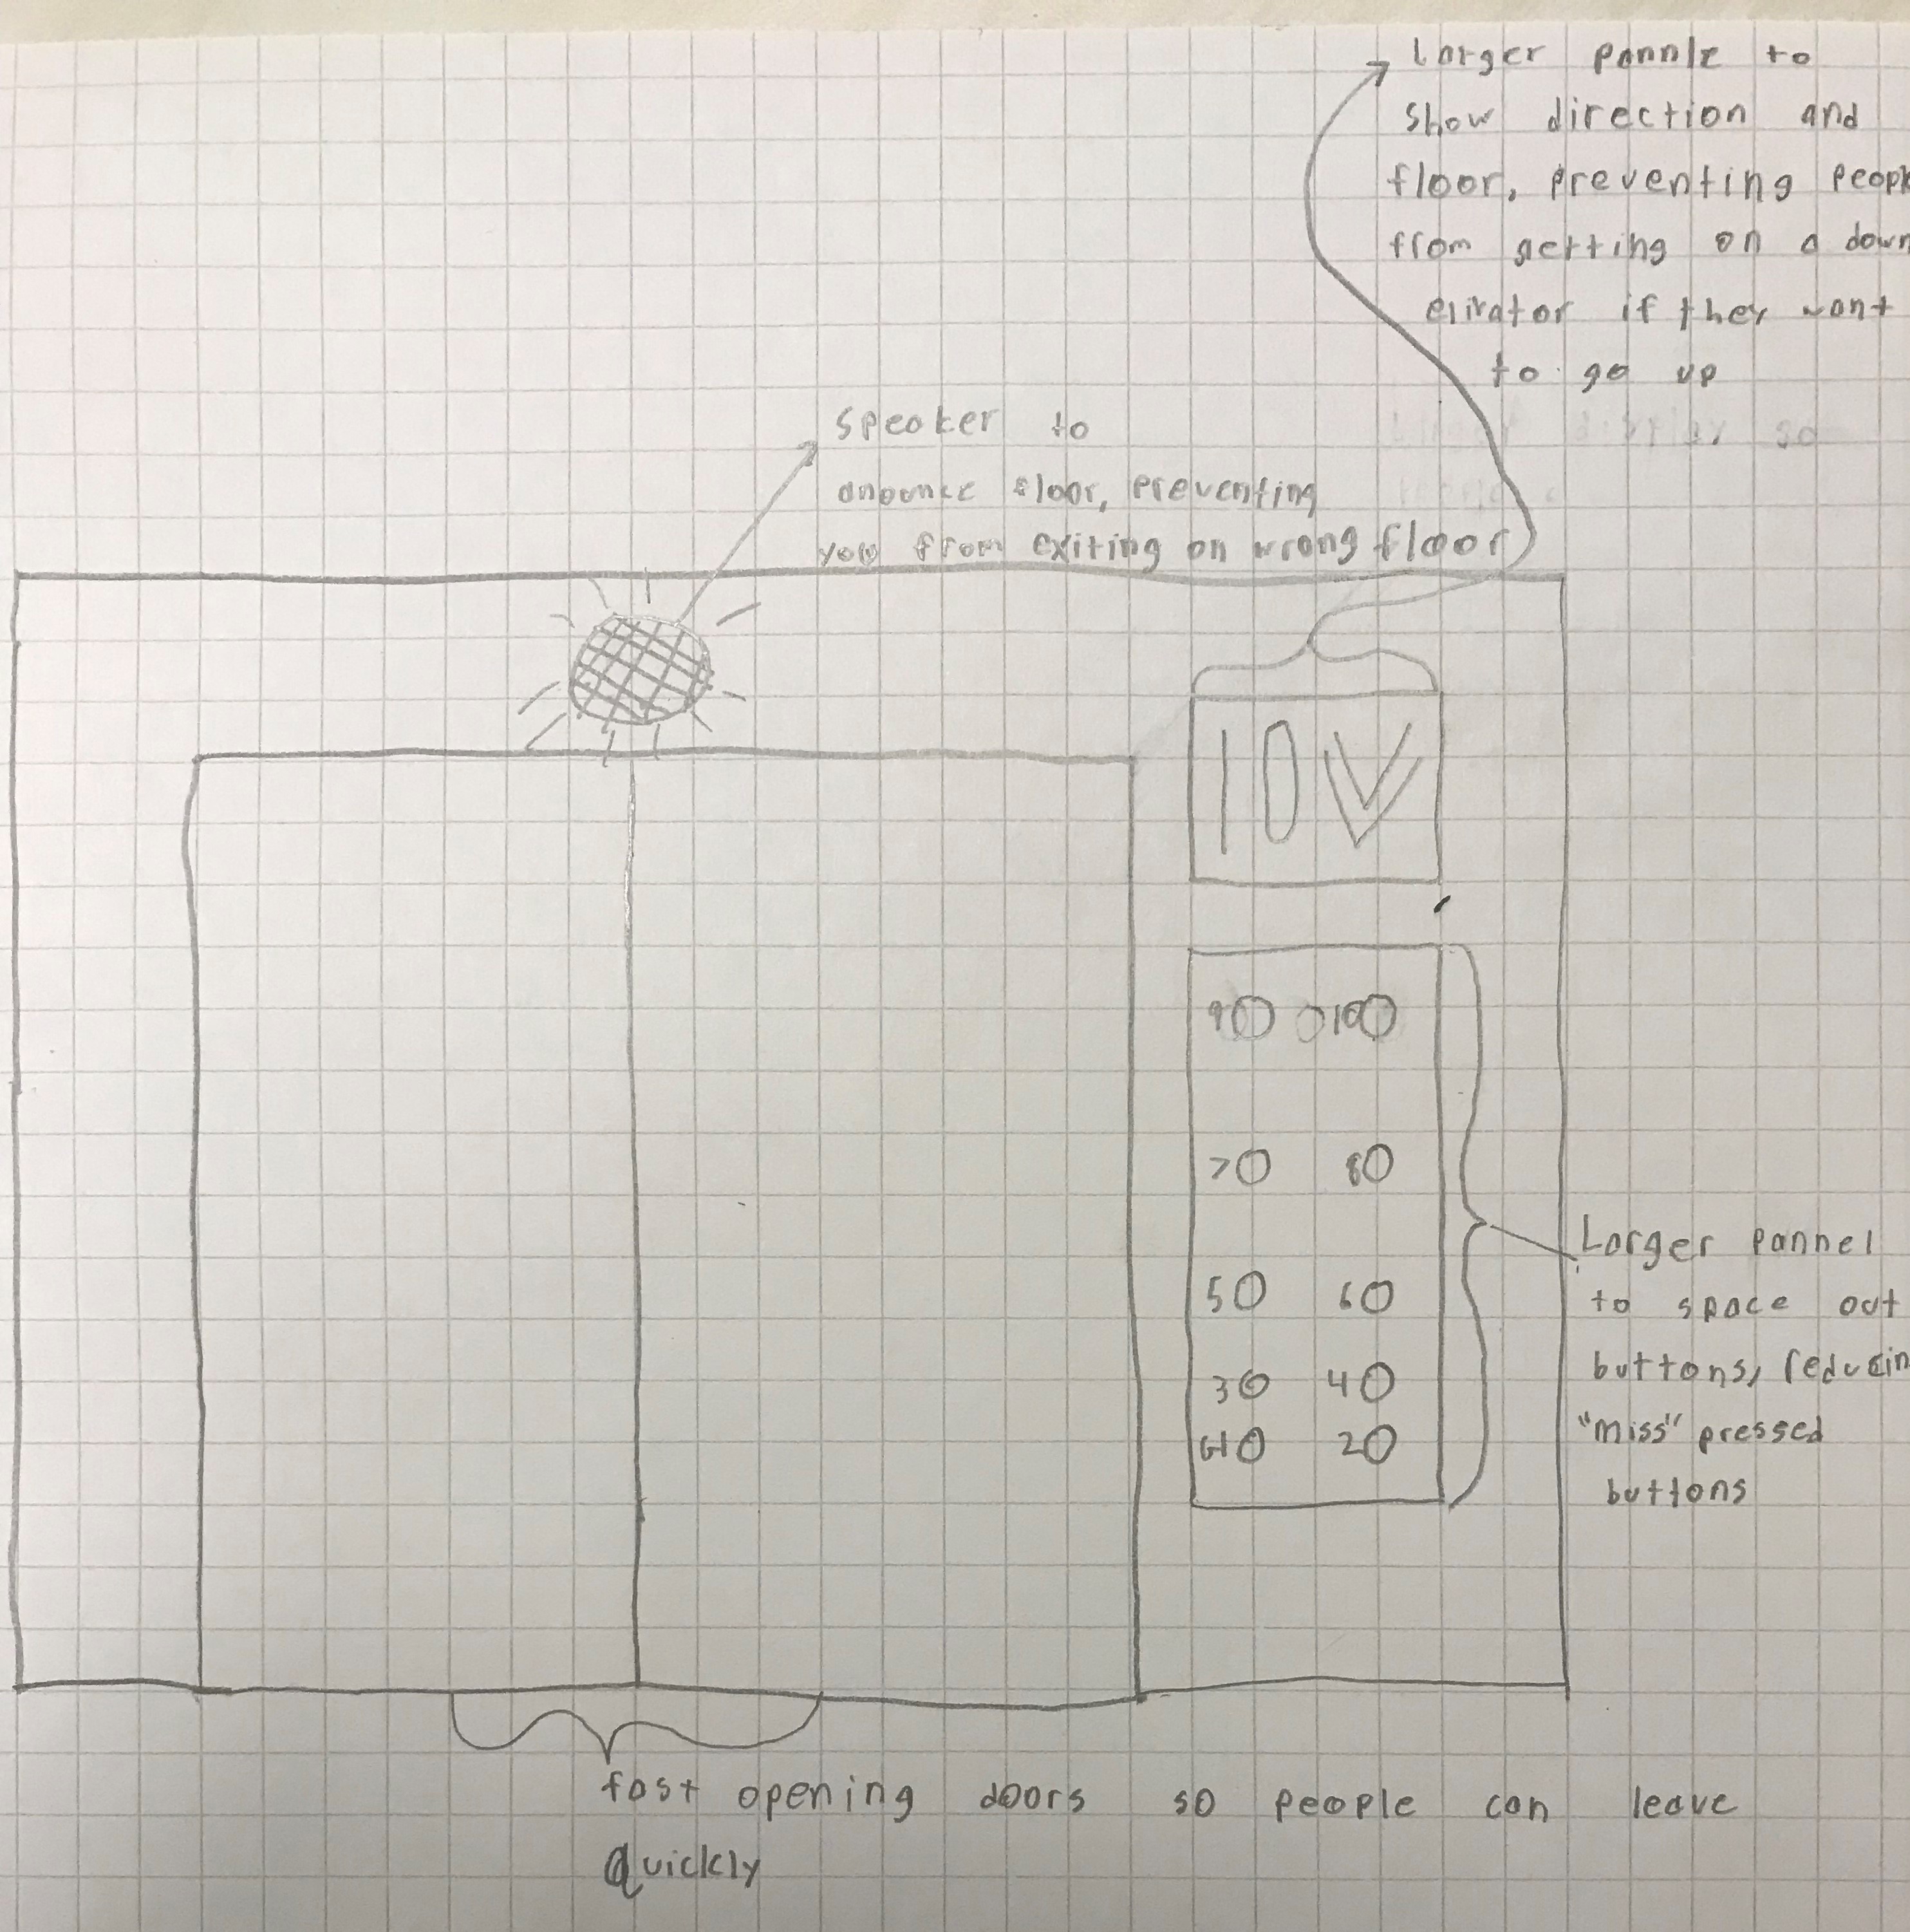 Larger pannle to
show direction and
floor, preventing peopl
from getting on a down
elivator if they want
to go up
speaker to
anounce floor, preventing
you from exiting on wrong floor
10
9 10
7 8
5 6
3 4
G1 2
Larger pannel
to space out
buttons, reducin
"miss" pressed
buttons
fast opening doors so people can leave
quickly